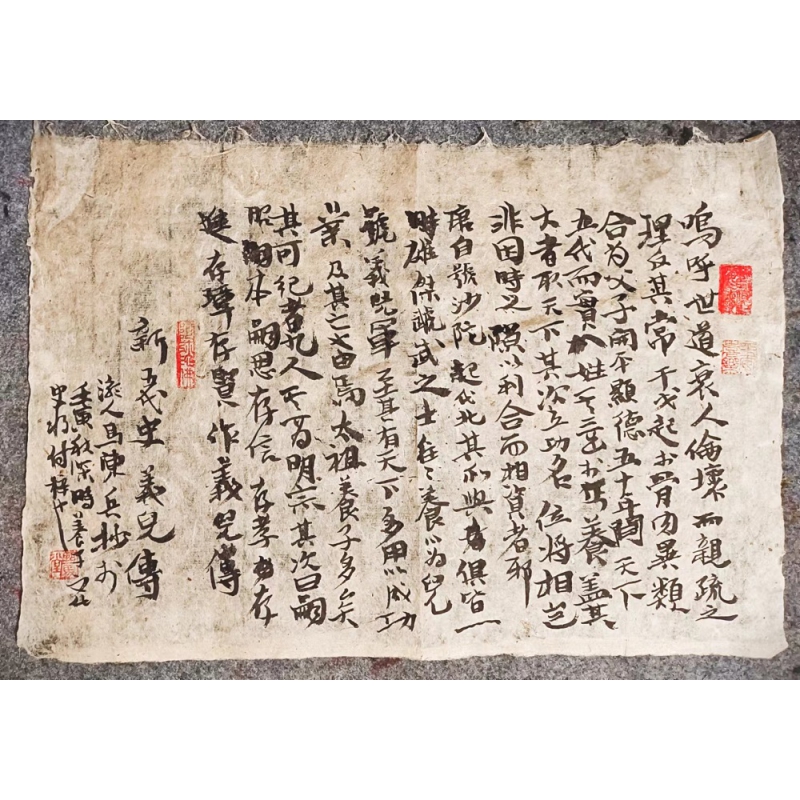 嗚呼世道衰人倫壞而親疏之
理反其常干戈起於骨肉異類
合为父子開平顯德五十年間天下
五代而實八姓其三出於丐養盖其
大者取天下其次立功名位將相豈
非因時之隙以利合而相資者邪
唐自號沙陀起代北其所與者俱皆一
時雄傑虣武之士往〻養以为兒
號義兒軍至其有天下多用以成功
業及其亡也由焉太祖養子多矣
其可紀者九人其一为明宗其次曰嗣
昭嗣本嗣恩存信存孝存
進存璋存賢作義兒傳
新五代史義兒傳
流人馬陳兵抄於
壬寅秋深時